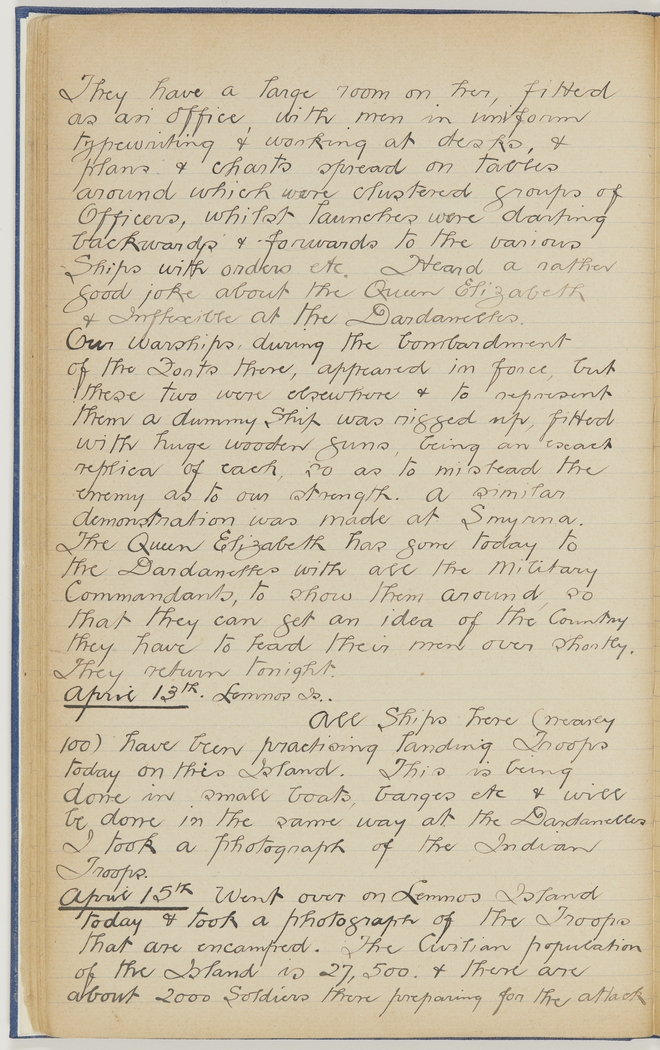 They have a large room on her, fitted
as an Office, with men in uniform
typewriting & working at desks, &
plans & charts spread on tables
around which were clustered groups of
Officers, whilst launches were darting
backwards & forwards to the various
Ships with orders etc. Heard a rather
good joke about the Queen Elizabeth
& Inflexible at the Dardanelles.
Our warships, during the bombardment
of the Forts there, appeared in force, but
these two were elsewhere & to represent
them a dummy Ship was rigged up, fitted
with huge wooden guns, being an exact
replica of each, so as to mislead the
enemy as to our strength. A similar
demonstration was made at Smyrna.
The Queen Elizabeth has gone today to
the Dardanelles with all the Military
Commandants, to show them around, so
that they can get an idea of the Country
they have to lead their men over shortly.
They return tonight.
April 13th. Lemnos Is..
All Ships here (nearly
100) have been practising landing Troops
today on this Island. This is being
done in small boats, barges etc & will
be done in the same way at the Dardanelles
I took a photograph of the Indian
Troops.
April 15th Went over on Lemnos Island
today & took a photograph of the Troops
that are encamped. The Civilian population
of the Island is 27,500. & there are
about 2000 Soldiers there preparing for the attack